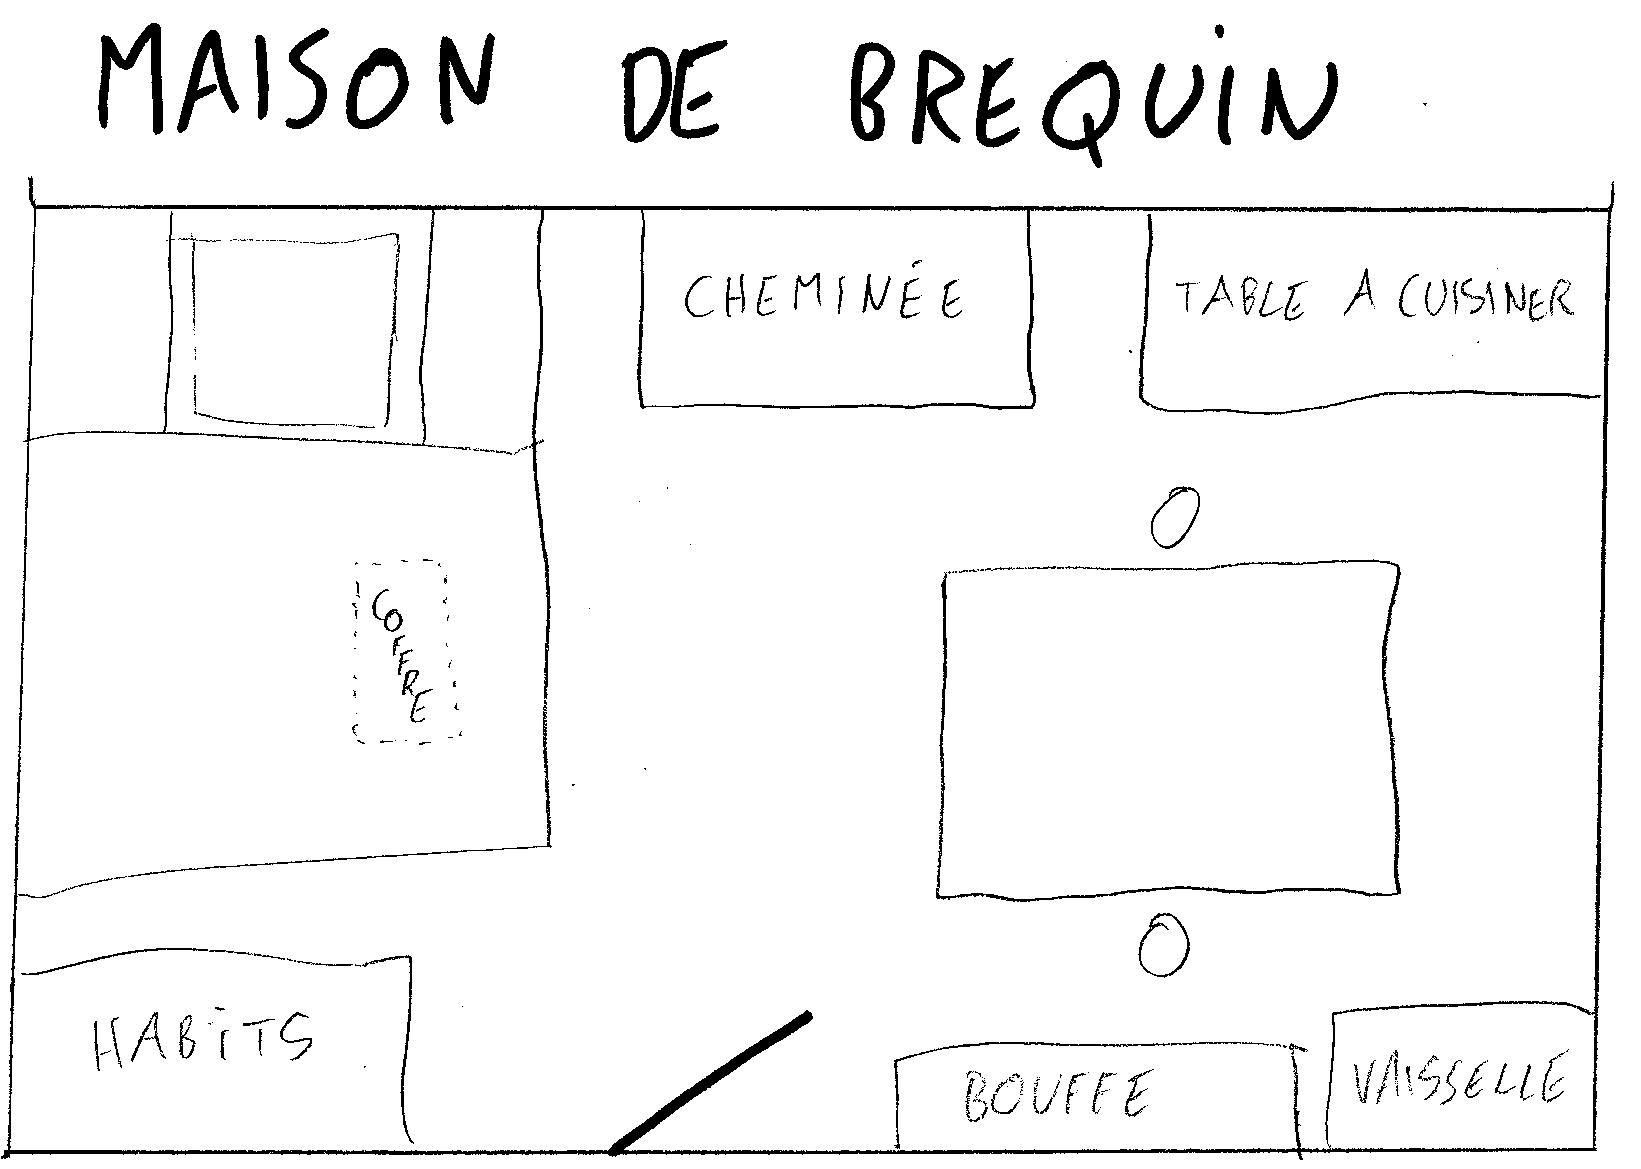 MAISON DE BREQUIN
CHEMINÉE
TABLE A CUISINER
COFFRE
HABITS
BOUFFE
VAISSELLE